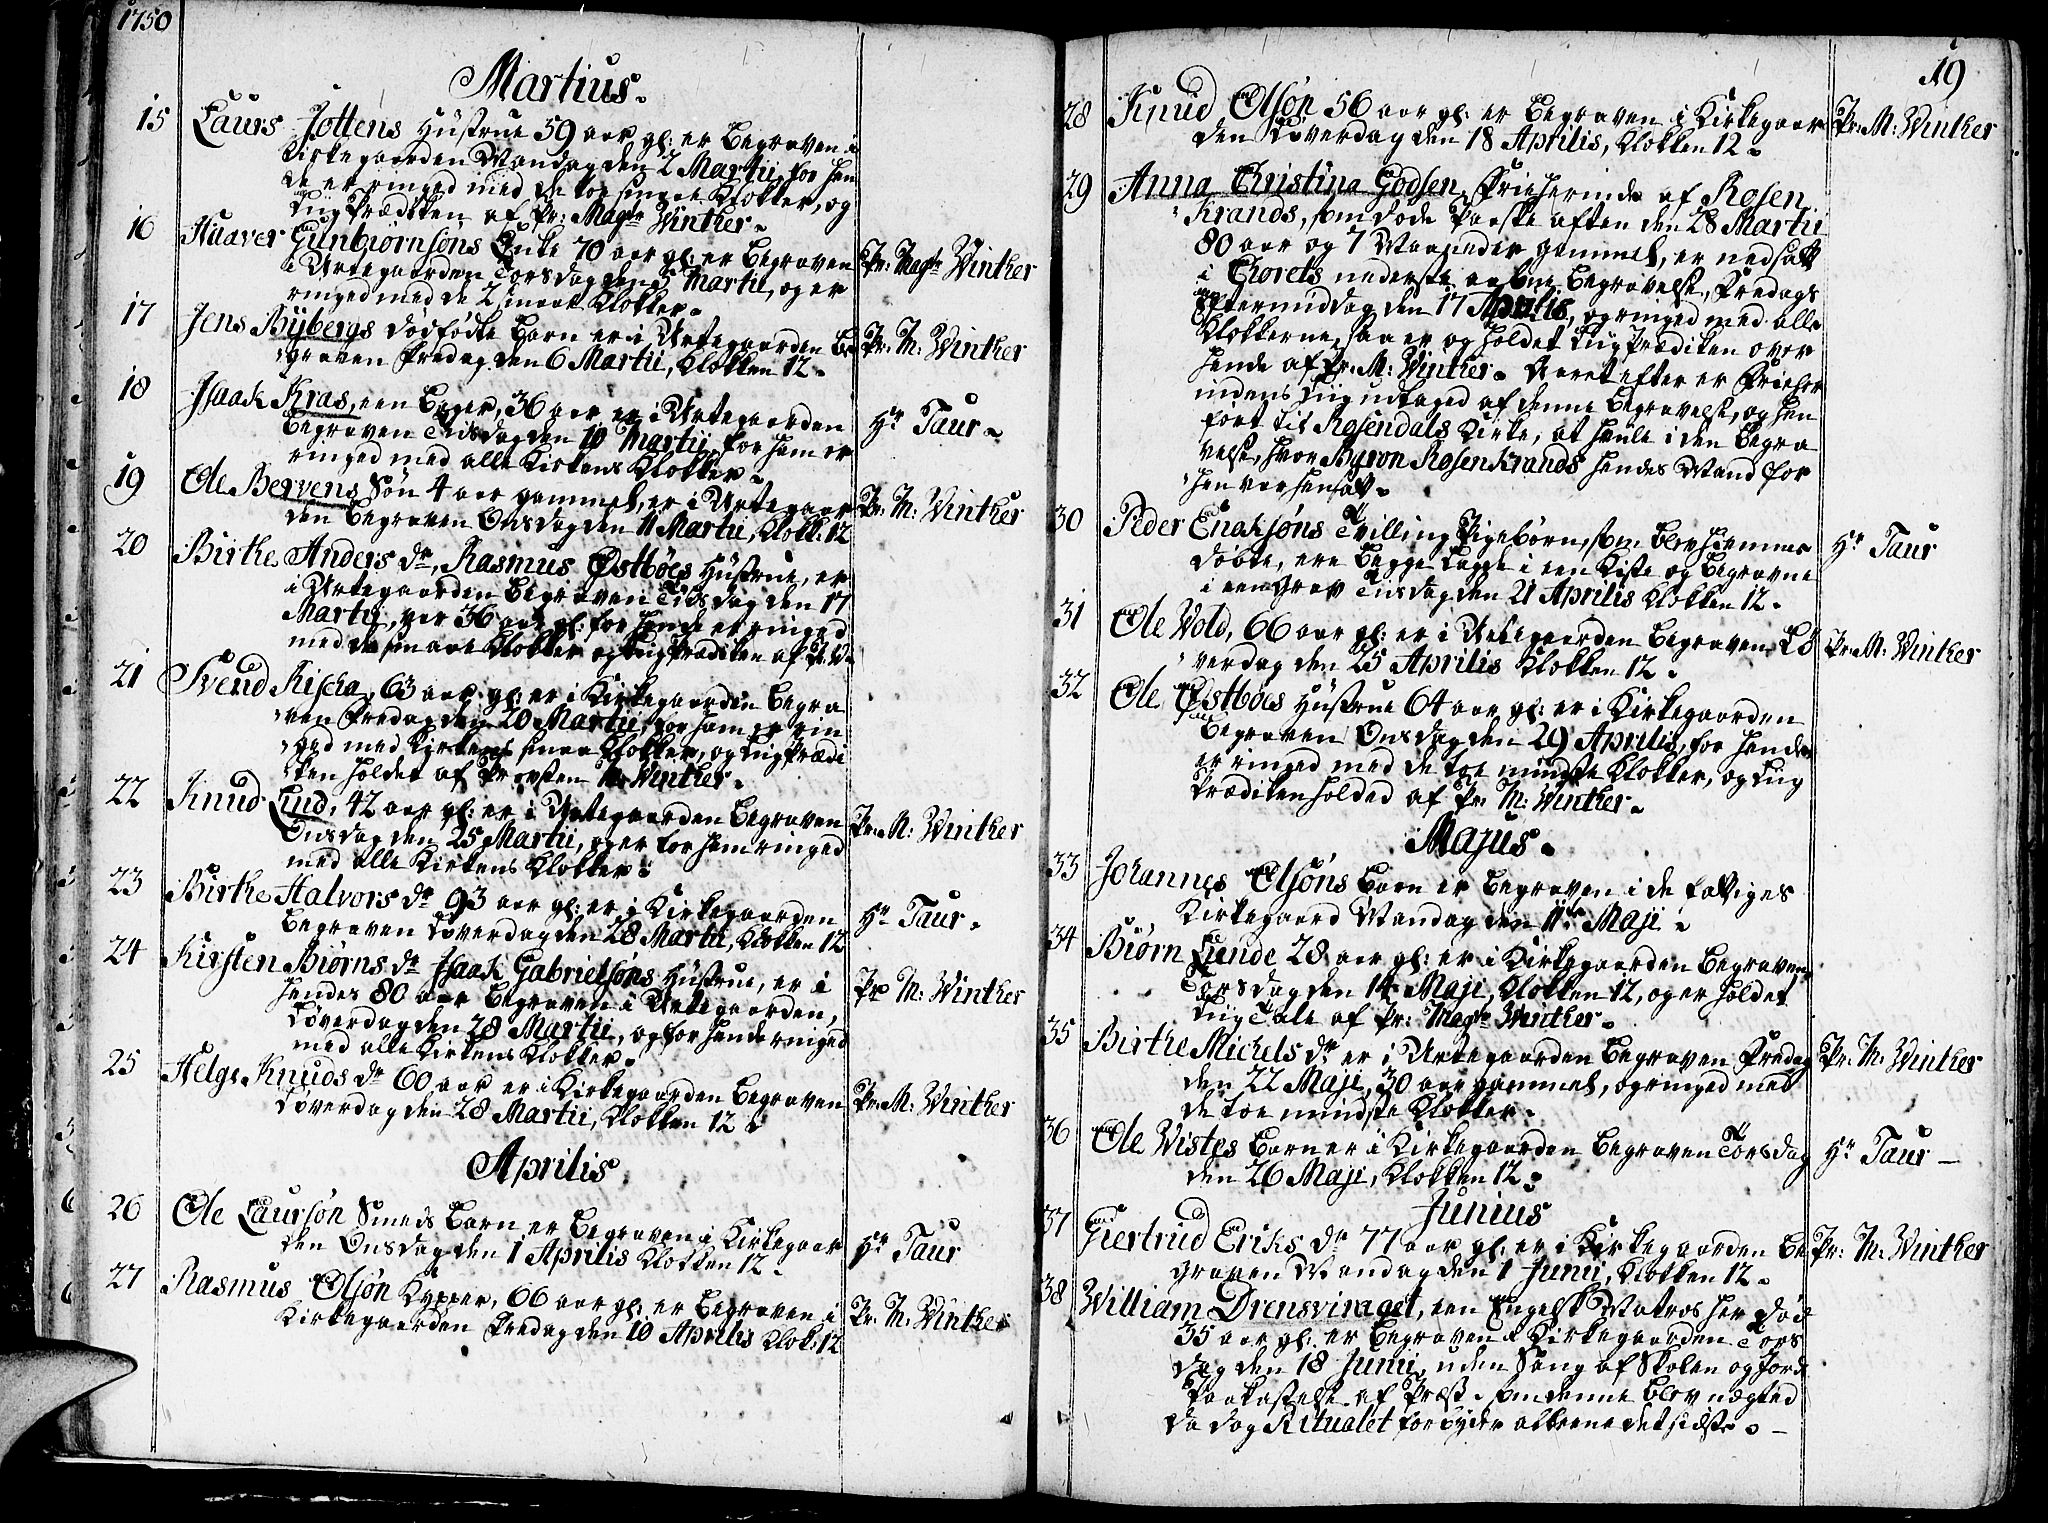 1750
Martius.
15 Laurs Jottens Hustrue 59 aar gl: er begraven i
Kirkegaarden Mandag den 2 Martii, for hen
de er ringed med de toe smaae Klokker, og
Liig Prædiken af Pr: Magr Winther.
16 Huaver Gunbiørnsøns Enke 70 aar gl: er begraven
i Urtegaarden Torsdag den 5 Martii, og er
ringed med de 2 smaae Klokker.
Pr: Magr Winther
17 Jens Bybergs dødfødte barn er i Urtegaarden be
graven Fredag den 6 Martii, Klokken 12.
Pr: M: Winther
18 Isaak Kras, een Borger, 36 aar er i Urtegaarden
begraven Tiisdag den 10 Martii, for ham er
ringed med alle Kirkens Klokker.
Hr Taur.
19 Ole Bervens Søn 4 aar gammel, er i Urtegaar
den begraven Onsdag den 11 Martii, Klokk: 12
Pr: M: Winther
20 Birthe Anders dr, Rasmus Østbøes Hustrue, er
i Urtegaarden begraven Tiisdag den 17
Martii, var 36 aar gl: for hende er ringed
med de smaae Klokker og Liig Prædiken af P: W.
21 Svend Rischa, 63 aar gl: er i Kirkegaarden begra
ven Fredag den 20 Martii, for ham er rin
ged med Kirkens smaae Klokker, og Liig Prædi
ken holdet af Provsten M: Winther.
22 Knud Lind, 42 aar gl: er i Urtegaarden begraven
Onsdag den 25 Martii, og er for ham ringed
med alle Kirkens Klokker.
Pr: M: Winther
23 Birthe Halvors dr 93 aar gl: er i Kirkegaarden
begraven Løverdag den 28 Martii, Klokken 12
Hr Taur.
24 Kirsten Biørns dr Isaak Gabrielsøns Hustrue, er i
hendes 80 aar begraven i Urtegaarden,
Løverdag den 28 Martii, og for hende ringed
med alle Kirkens Klokker.
Pr M: Winther
25 Helge Knuds dr 60 aar er i Kirkegaarden begraven
Løverdag den 28 Martii, Klokken 12
Pr: M: Winther
Aprilis
26 Ole Laursøn Smeds barn er begraven i Kirkegaar
den Onsdag den 1 Aprilis Klokken 12.
Hr Taur
27 Rasmus Olsøn Kypper, 66 aar gl: er begraven i
Kirkegaarden Fredag den 10 Aprilis Klok: 12
Pr: M: Winther
19
28 Knud Olsøn 56 aar gl: er begraven i Kirkegaar
den Løverdag den 18 Aprilis, Klokken 12.
Pr: M: Winther
29 Anna Christina Godsen, Friherinde af Rosen
Krands, som døde Paaske aften den 28 Martii
80 aar og 7 Maaneder gammel, er nedsatt
i Chorets nederste aabne begravelse, Fredags
Eftermiddag den 17 Aprilis, og ringed med alle
Klokkerne, saa er og holdet Liig Prædiken over
hende af Pr: M: Winther. Aaret efter er Frieher
indens Liig udtaged af denne begravelse, og hen
ført til Rosendals Kirke, at hvile i den begra
velse, hvor Byron RosenKrands hendes Mand for
hen var hensatt.
30 Peder Enoksøns Tvilling Pigebørn, som blev hiemme
døbte, ere begge lagde i een Kiste og begravne
i een Grav Tiisdag den 21 Aprilis Klokken 12.
Hr Taur
31 Ole Vold, 66 aar gl: er i Urtegaarden begraven Lø
verdag den 25 Aprilis Klokken 12.
Pr: M: Winther
32 Ole Østbøes Hustrue 64 aar gl: er i Kirkegaarden
begraven Onsdag den 29 Aprilis, for hende
er ringed med de toe mindste Klokker, og Liig
Prædiken holded af Pr: M: Winther.
Majus.
33 Johannes Olsøns barn er begraven i de fattiges
Kirkegaard Mandag den 11te Maji
34 Biørn Lunde 28 aar gl: er i Kirkegaarden begraven
Torsdag den 14 Maji, Klokken 12, og er holdet
Liig Tale af Pr: Magr Winther.
35 Birthe Michels dr er i Urtegaarden begraven Fredag
den 22 Maji, 30 aar gammel, og ringed med
de toe mindste Klokker.
Pr: M: Winther
36 Ole Vistes barn er i Kirkegaarden begraven Torsdag
den 26 Maji, Klokken 12.
Hr Taur
Junius
37 Giertrud Eriks dr 77 aar gl: er i Kirkegaarden be
graven Mandag den 1 Junii, Klokken 12.
Pr: M: Winther
38 William Drensviraget, een Engelsk Matros her død
35 aar gl: er begraven i Kirkegaarden Tors
dag den 18 Junii, uden Sang af Skolen og Jords
Paakastelse af Præst, som denne blev nægted
da dog Ritualet forbyder alleene det sidste.